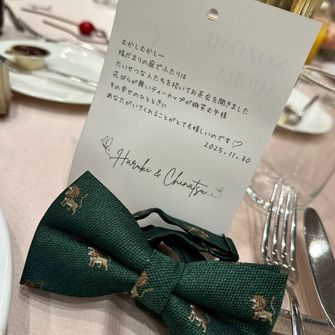 むかしむかし—
陽だまりの庭でふたりは
たいせつな人たちを招いてお茶会を開きました
花びらが舞いティーカップが微笑む午後
その幸せのひとときに
あなたがいてくれることがとても嬉しいのです♡
2025.11.30
Haruki & Chinatsu